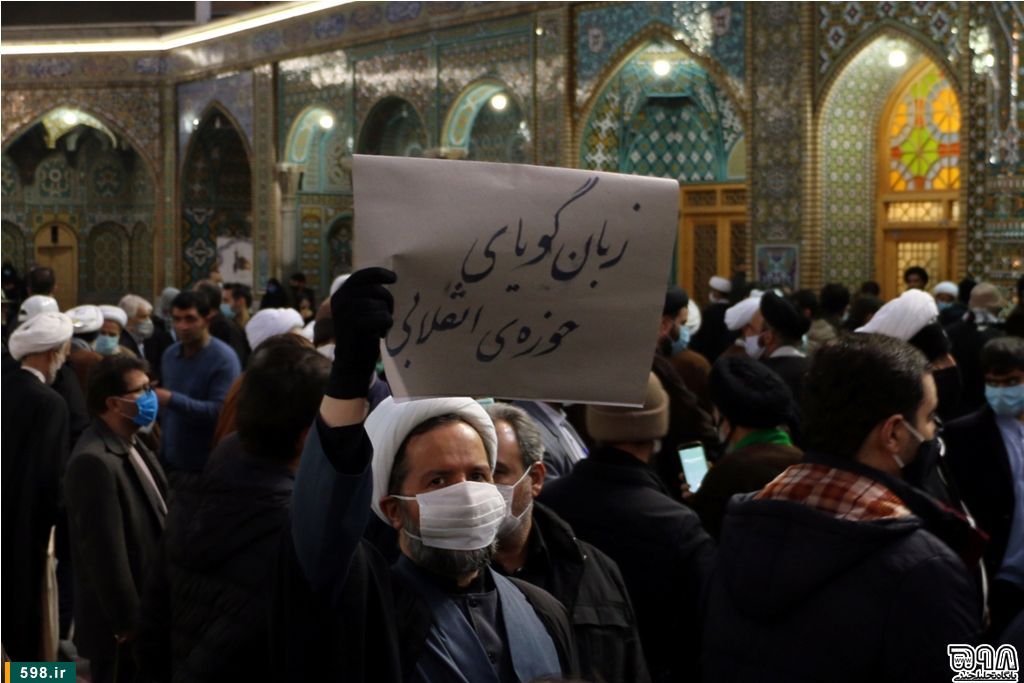 زبان گویای
حوزه‌ی انقلابی
598.ir